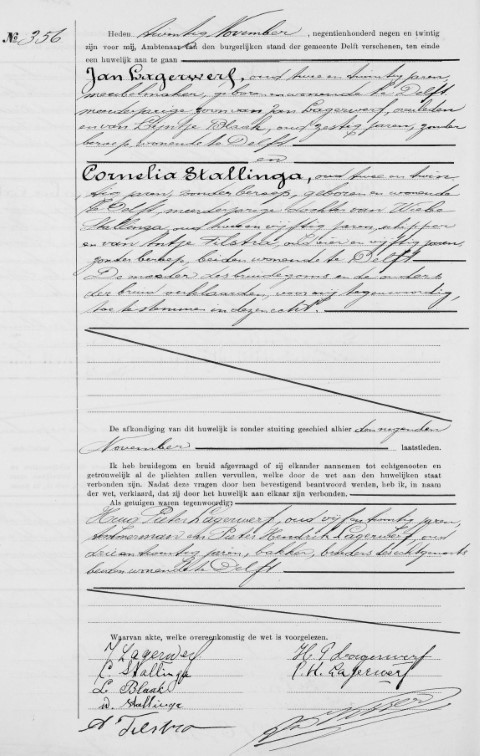 No 356
Heden twintig November, negentienhonderd negen en twintig
zijn voor mij, Ambtenaar van den burgerlijken stand der gemeente Delft verschenen, ten einde
een huwelijk aan te gaan
Jan Lagerwerf, oud twee en twintig jaren,
meubelmaker, geboren en wonende te Delft
meerderjarige zoon van Jan Lagerwerf, overleden
en van Lijntje Blaak, oud zestig jaren, zonder
beroep, wonende te Delft
en
Cornelia Stallinga, oud twee en twin
tig jaren, zonder beroep, geboren en wonende
te Delft, meerderjarige dochter van Wiebe
Stallinga, oud vijftig jaren, schipper
en van Antje Tilstra, oud vier en vijftig jaren,
zonder beroep, beiden wonende te Delft.
De moeder des bruidegoms en de ouders
der bruid verklaarden, voor mij tegenwoordig,
toe te stemmen in dezen echt.
De afkondiging van dit huwelijk is zonder stuiting geschied alhier den negenden
November laatstleden.
Ik heb bruidegom en bruid afgevraagd of zij elkander aannemen tot echtgenooten en
getrouwelijk al de plichten zullen vervullen, welke door de wet aan den huwelijken staat
verbonden zijn. Nadat deze vragen door hen bevestigend beantwoord werden, heb ik, in naam
der wet, verklaard, dat zij door het huwelijk aan elkaar zijn verbonden.
Als getuigen waren tegenwoordig:
Huug Pieter Lagerwerf, oud vijf en twintig jaren,
en Pieter Hendrik Lagerwerf, oud
drie en twintig jaren, bakker, broeders des echtgenoots
beiden wonende te Delft
Waarvan akte, welke overeenkomstig de wet is voorgelezen.
J Lagerwerf
H. P Lagerwerf
C. Stallinga
P. H. Lagerwerf
L. Blaak
W. Stallinga
A Tilstra